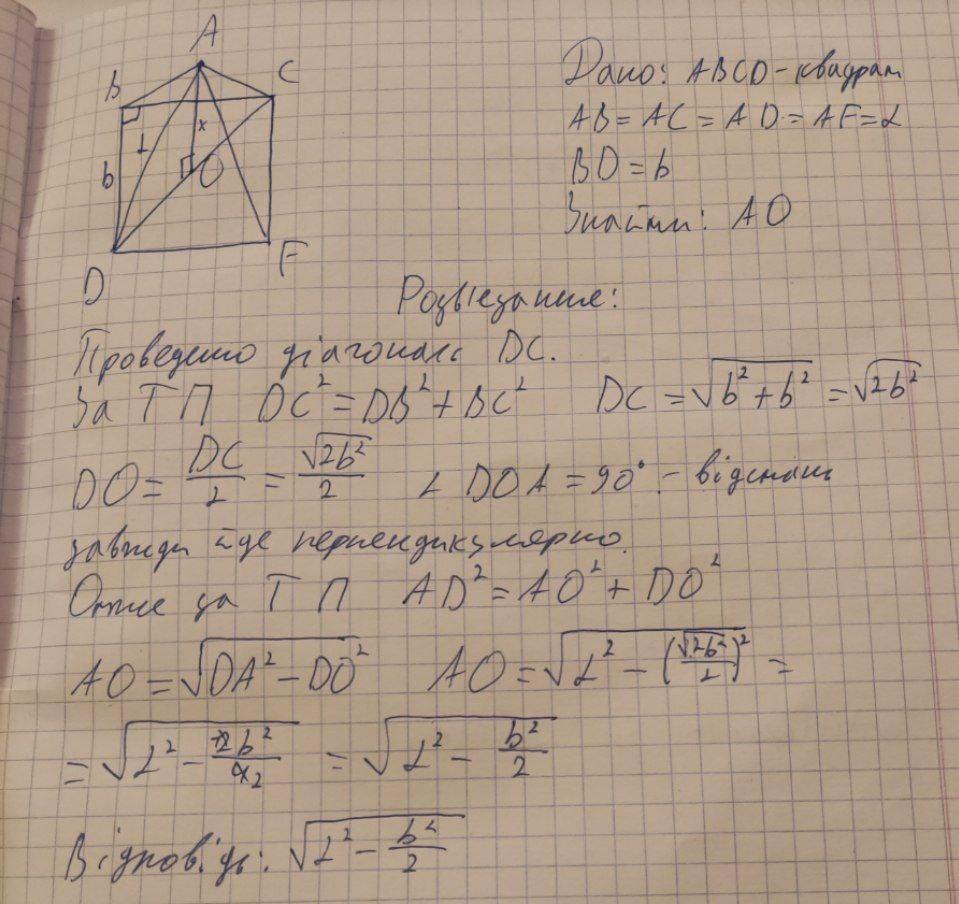 A
B
C
b
L
x
O
D
F
Дано: ABCD - квадрат
AB = AC = AD = AF = L
BD = b
Знайти: AO
Розвʼязання:
Проведемо діагональ DC.
За Т П DC² = DB² + BC² DC = √(b² + b²) = √(2b²)
DO = DC/2 = √(2b²)/2 ∠ DOA = 90° - відстань
завжди йде перпендикулярно.
Отже за Т П AD² = AO² + DO²
AO = √(DA² - DO²) AO = √(L² - (√(2b²)/2)²) =
= √(L² - 2b²/4 2) = √(L² - b²/2)
Відповідь: √(L² - b²/2)